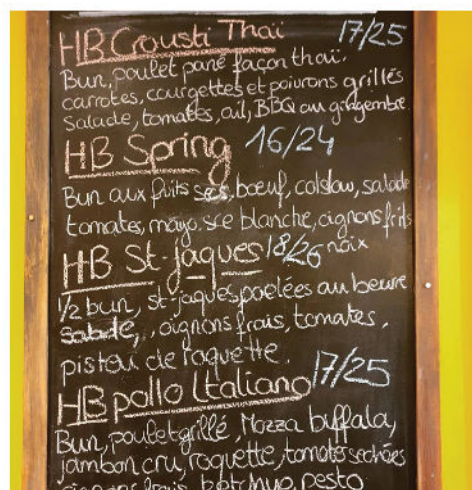 HB Crousti Thaï 17/25
Bun, poulet pané façon thaï.
carrotes, courgettes et poivrons grillés
Salade, tomates, ail, BBQ au gingembre.
HB Spring 16/24
Bun aux fruits secs, boeuf, colslaw, salade
tomates, mayo, sce blanche, oignons frits
HB St-jaques 18/26 noix
1/2 bun, st-jaques poelées au beurre
salade, oignons frais, tomates,
pistou de roquette.
HB pollo Italiano 17/25
Bun, poulet grillé, Mozza buffala,
jambon cru, roquette, tomate sechées
oignons frais, pesto